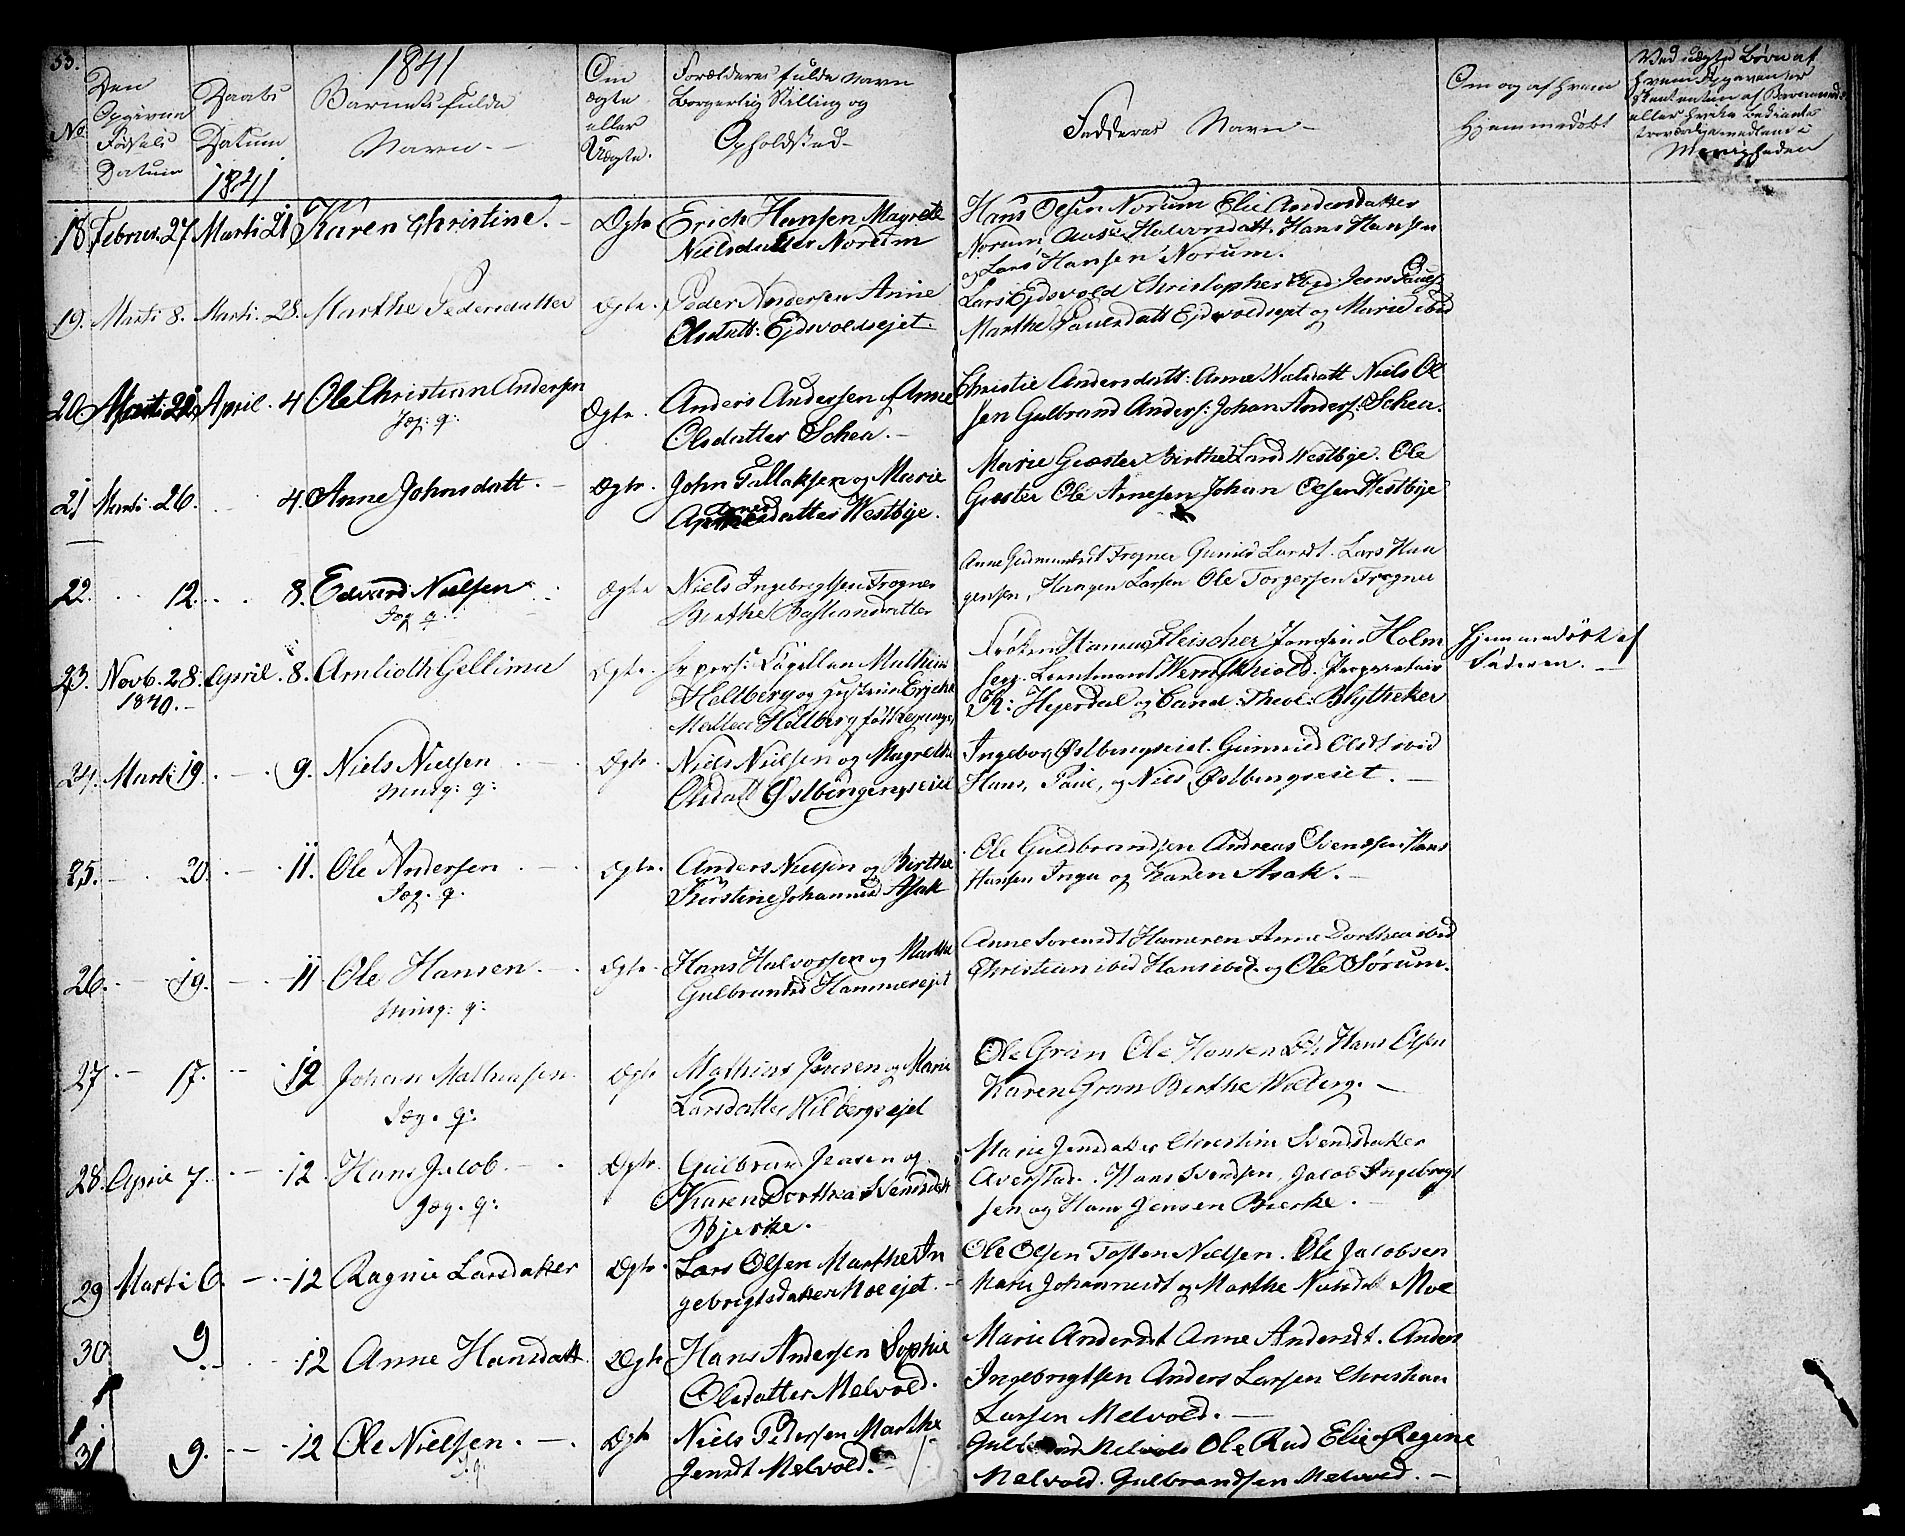 33.
1841
No
Den Opgivne Fødsels Datum
Daabs Datum 1841
Barnets fulde Navn.
Om ægte eller Uægte.
Forældrenes fulde Navn Borgerlig Stilling og Opholdsted
Faddernes Navn
Om og af hvem Hjemmedøbt
Ved uægte Børn af hvem Menigheden
18 Februar 27 Marti 21 Karen Christine.
Ægte
Erich Hansen Magrete
Nielsdatter Norum
Hans Olsen Norum Elie Andersdatter
Norum Aase Halvorsdatt. Hans Hansen
og Lars Hansen Norum.
19. Marti 8. Marti. 28. Marthe Pedersdatter
Ægte.
Peder Andersen Anne
Olsdatt: Ejdsvoldsejet.
Lars Ejdsvold Christopher ibid: Jens Paulss
Marthe Paulsdatt Ejdsvoldsejet og Marie ibid
20 Marti 22 April. 4 Ole Christian Andersen
Jag: q:
Ægte.
Anders Andersen og Anne
Olsdatter Schea.
Christie Andersdatt: Anne Nielsdatt Niels Ol
sen Gulbrand Anders: Johan Anders: Schea.
21 Marti 26. 4. Anne Johnsdatt.
Ægte.
John Tallaksen og Marie
datter Westbye.
Marie Giester Birthe Lund Westbye. Ole
Giester Ole Arnesen Johan Olsen Westbye
22. 12. 8. Edvard Nielsen
Jag q:
Ægte
Niels Ingebrigtsen Frogner
Berthe Bastiansdatter
Anne Gudmundsdt Frogner Gunild Larsdt. Lars Haa
gensen, Haagen Larsen Ole Torgersen Frogner
23. Novb. 28. April. 8.
1840.
Ægte.
Hellberg og Hustrue
Hellberg født
Frøken Hanna Fleischer Jomfrue Holm
Lieutnant Proprietair
K: Hejerdal og Cand: Theol: Blytheker
Hjemmedøbt af
Faderen.
24. Marti 19. 9. Niels Nielsen
Ming: q:
Ægte.
Niels Nielsen og Magrethe
Olsdatt Østbyengseiet
Ingebor Østbengseiet. Gunnild Olsdt ibid
Hans, Paul, og Niels Østbengseiet.
25. 20. 11. Ole Andersen
Jag. q.
Ægte.
Anders Nielsen og Birthe
Kirstine Johannesd Asak
Ole Guldbrandsen Andreas Svendsen Hans
Hansen Inga og Karen Asak.
26. 19. 11 Ole Hansen.
Ming: q:
Ægte.
Hans Halvorsen og Marthe
Gulbrandsd Hammerejet
Anne Sorensdt Hameren Anne Dorthea ibid
Christian ibid Hans ibid. og Ole Sørum.
27. 17. 12 Johan Mathiasen.
Jag. q:
Ægte
Mathias Jensen og Marie
Larsdatter Wilbergsejet
Ole Gran Ole Hansen Hans Olsen
Karen Gran Berthe Wilberg.
28. April 7. 12 Hans Jacob.
Jag. q:
Ægte.
Gulbran Jensen og
Karen Dorthea Svendsdatt
Bjerke.
Marie Jensdatter Christine Svendsdatter
Averstad. Hans Svendsen, Jacob Ingebrigt
sen og Hans Jensen Bierke.
29 Marti 6. 12 Ragnie Larsdatter
Ægte.
Lars Olsen Marthe In
gebrigtsdatter Moeejet.
Ole Olsen Tosten Nielsen. Ole Jacobsen
Marie Johannesdt og Marthe Nielsdatt Moe
30 9 12 Anne Hansdatt.
Ægte
Hans Andersen Sophie
Olsdatter Melvold.
Marie Andersdt Anne Andersdt. Anders
Ingebrigtsen Anders Larsen Christian
Larsen Melvold.
31 9. 12 Ole Nielsen.
J. q:
Ægte
Niels Pedersen Marthe
Jensdt Melvold.
Melvold Ole Rud Elie og Regine
Melvold. Gulbrandsen Melvold.